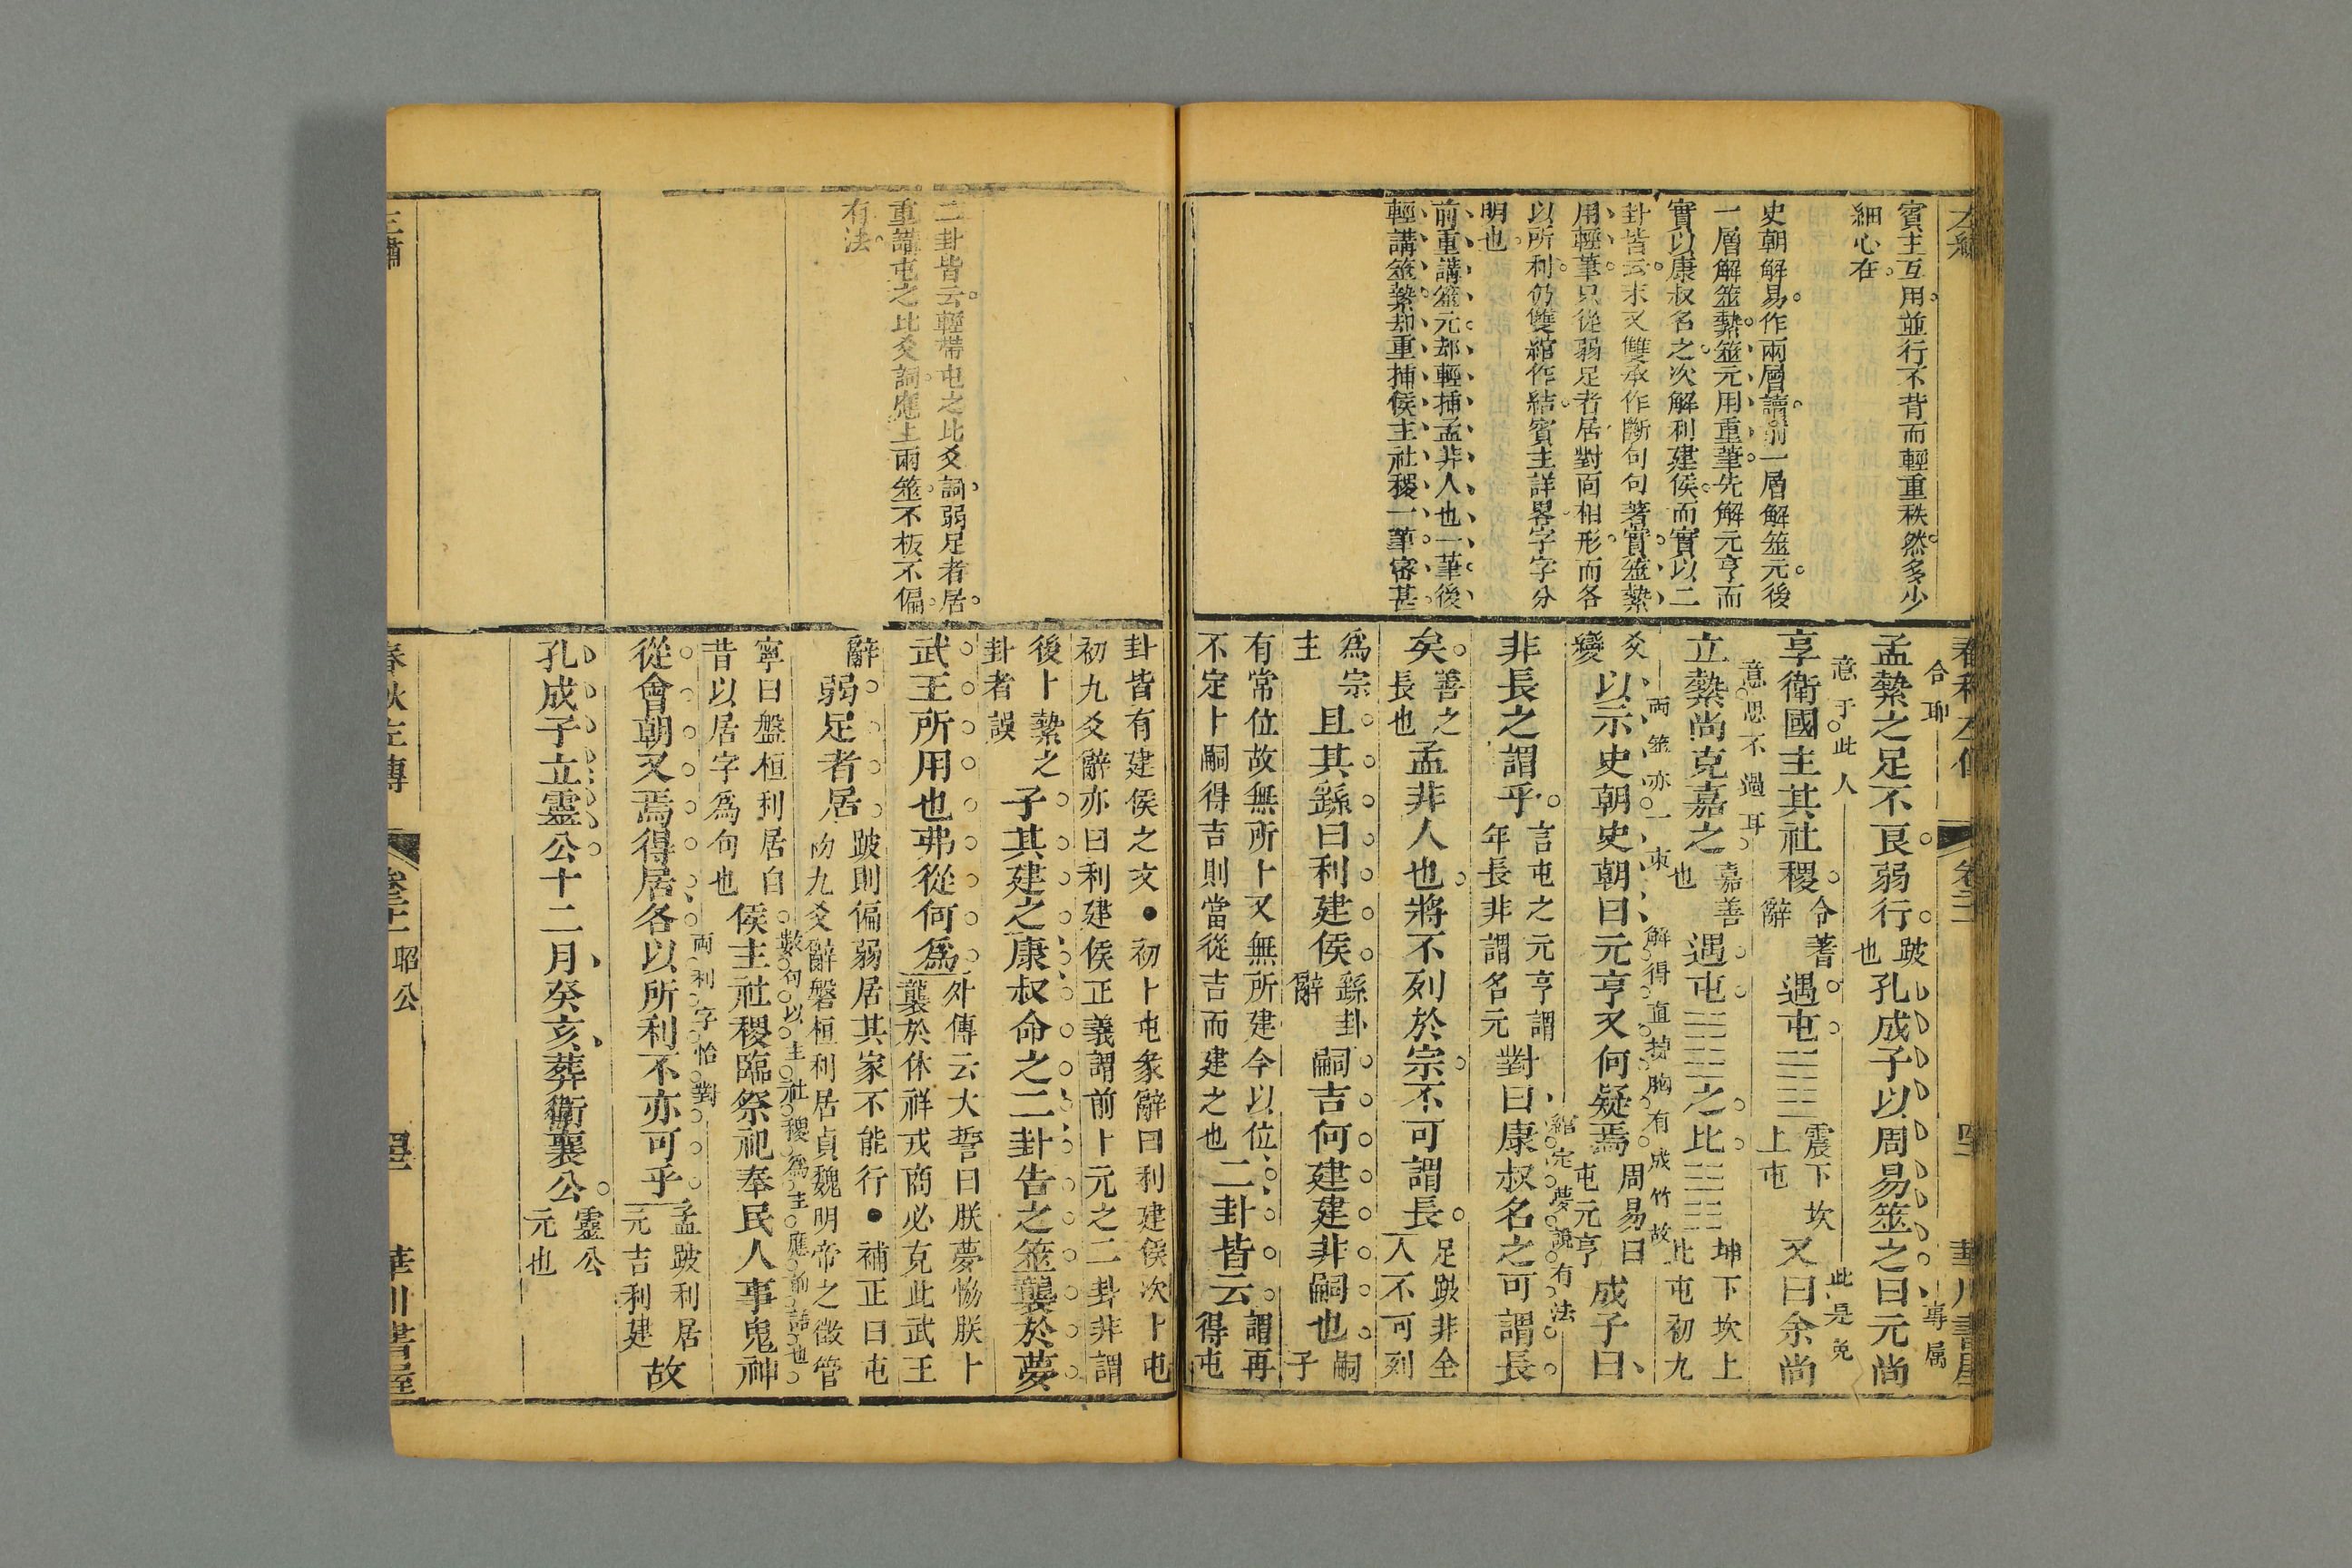 賓主互用並行不背而輕重秩然多少
細心在
史朝解易作兩層讀前一層解筮元後
一層解筮縶筮元用重筆先解元亨而
實以康叔名之次解利建侯而實以二
卦皆云末又雙承作斷句句著實筮縶
用輕筆只從弱足者居對面相形而各
以所利仍雙綰作結賓主詳畧字字分
明也
前重講筮元却輕插孟非人也一筆後
輕講筮縶却重插侯主社稷一筆密甚
春秋左傳
合耶
孟縶之足不良弱行跛也孔成子以周易筮之曰元尚
專属
意于此人
享衛國主其社稷令蓍辭遇屯震下坎上屯又曰余尚
此是免
意思不過耳
立縶尚克嘉之嘉善也遇屯之比坤下坎上比屯初九
両筮亦一束
解得直捷胸有成竹故
爻變以示史朝史朝曰元亨又何疑焉周易曰屯元亨成子曰
綰定夢説有法
非長之謂乎言屯之元亨謂年長非謂名元對曰康叔名之可謂長
矣善之長也孟非人也將不列於宗不可謂長足跛非全人不可列
爲宗主且其繇曰利建侯繇卦辭嗣吉何建建非嗣也嗣子
有常位故無所卜又無所建今以位不定卜嗣得吉則當從吉而建之也二卦皆云謂再得屯
卦皆有建侯之文●初卜屯彖辭曰利建侯次卜屯初九爻辭亦曰利建侯正義謂前卜元之二卦非謂
後卜縶之卦者誤子其建之康叔命之二卦告之筮襲於夢
武王所用也弗從何爲外傳云大誓曰朕夢恊朕卜襲於休祥戎商必克此武王
辭弱足者居跛則偏弱居其家不能行●補正曰屯初九爻辭磐桓利居貞魏明帝之徵管
寧曰盤桓利居自昔以居字爲句也侯主社稷臨祭祀奉民人事鬼神
數句以主社稷爲主應前語也
從會朝又焉得居各以所利不亦可乎孟跛利居元吉利建故
両利字恰對
孔成子立靈公十二月癸亥葬衛襄公靈公元也
二卦皆云輕帶屯之比爻詞弱足者居
重講屯之比爻詞應上兩筮不板不偏
有法
昭公